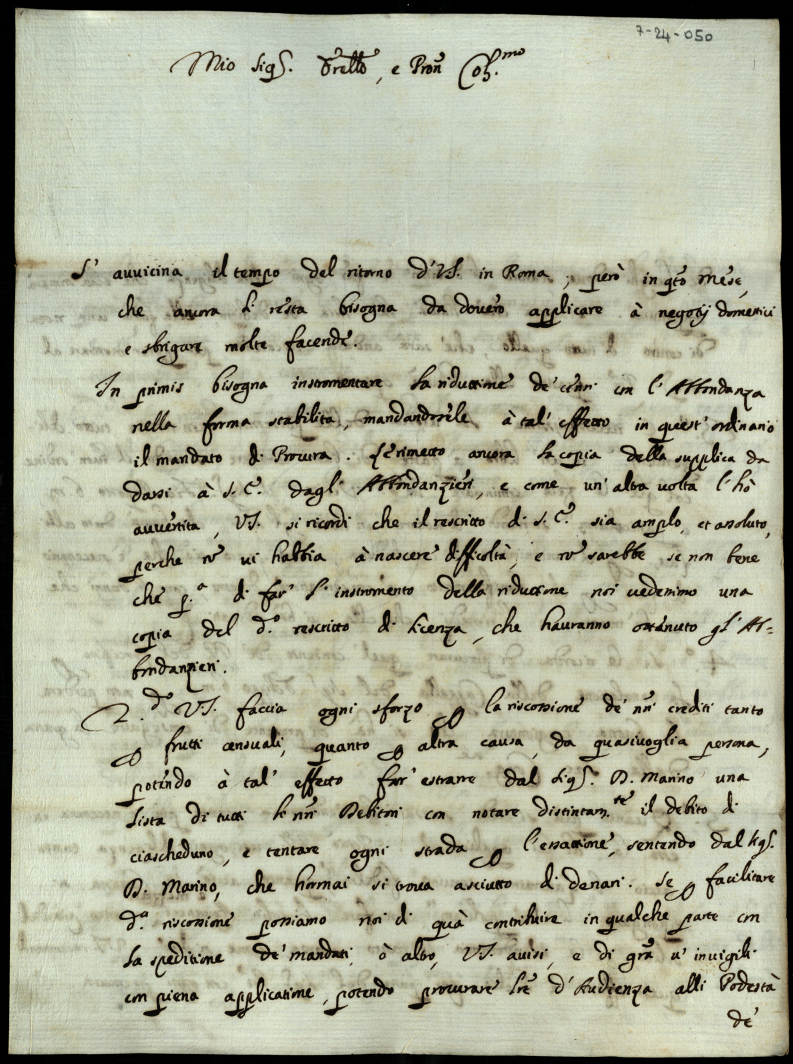 7-24-050
Mio Sig.r Frello, e Pron Col.mo
S' auuicina il tempo del ritorno d'VS. in Roma, però in q.to mese,
che ancora li resta bisogna da douero applicare à negotij domestici
e sbrigare molte facende.
In primis bisogna instromentare la riduttione de' censi con l'Abbondanza
nella forma stabilita, mandandosele à tal' effetto in quest' ordinario
il mandato di Procura. Se rimetto ancora la copia della supplica da
darsi à S. E. dagl' Abbondanzieri, e come un' altra uolta l' hò
auuertita, VS. si ricordi che il rescritto di S. E. sia amplo, et assoluto,
perche nò ui habbia à nascere difficoltà, e nò sarebbe se non bene
che p.a di far' l' instromento della riduttione noi uedessimo una
copia del d.o rescritto di licenza, che hauranno ottenuto gl' Ab=
bondanzieri.
2.do VS. faccia ogni sforzo p la riscossione de' nri crediti tanto
p frutti censuali, quanto p altra causa, da quasiuoglia persona,
potendo à tal' effetto far' estrarre dal Sig.r D. Marino una
lista di tutti li nri Debitori con notare distintam.te il debito di
ciascheduno, e tentare ogni strada p l'essattione, sentendo dal Sig.r
D. Marino, che hormai si troua asciutto di denari. Se p facilitare
d.a riscossione possiamo noi di quà contribuire in qualche parte con
la speditione de' mandati, ò altro, VS. auisi, e di gra u' inuigili
con piena applicatione, potendo procurare lre d'Audienza alli Podestà
de'